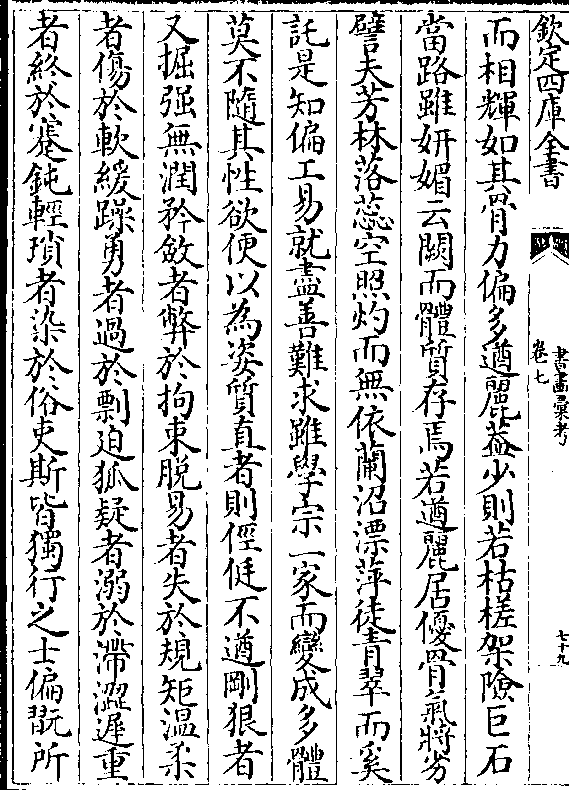 欽定四庫全書
書畫彙考
卷七
七十九
而相輝如其骨力偏多遒麗葢少則若枯槎架險巨石
當路雖妍媚云闕而體質存焉若遒麗居優骨氣將劣
譬夫芳林落蕊空照灼而無依蘭沼漂蓱徒青翠而奚
託是知偏工易就盡善難求雖學宗一家而變成多體
莫不隨其性欲便以為姿質直者則徑侹不遒剛狠者
又掘强無潤矜斂者弊於拘束脱易者失於規矩温柔
者傷於軟緩躁勇者過於剽迫狐疑者溺於滯澀遲重
者終於蹇鈍輕瑣者染於俗吏斯皆獨行之士偏翫所